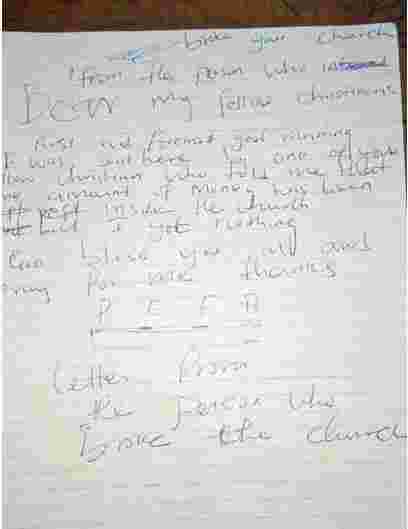 broke your church
"From the person who
Dear my fellow christians
First and foremost good morning
I was sent here by one of your
fellow christian who told me that
amount of money has been
kept inside the church
but I got nothing
bless you all and
for me thanks
Letter from
the person who
broke the church